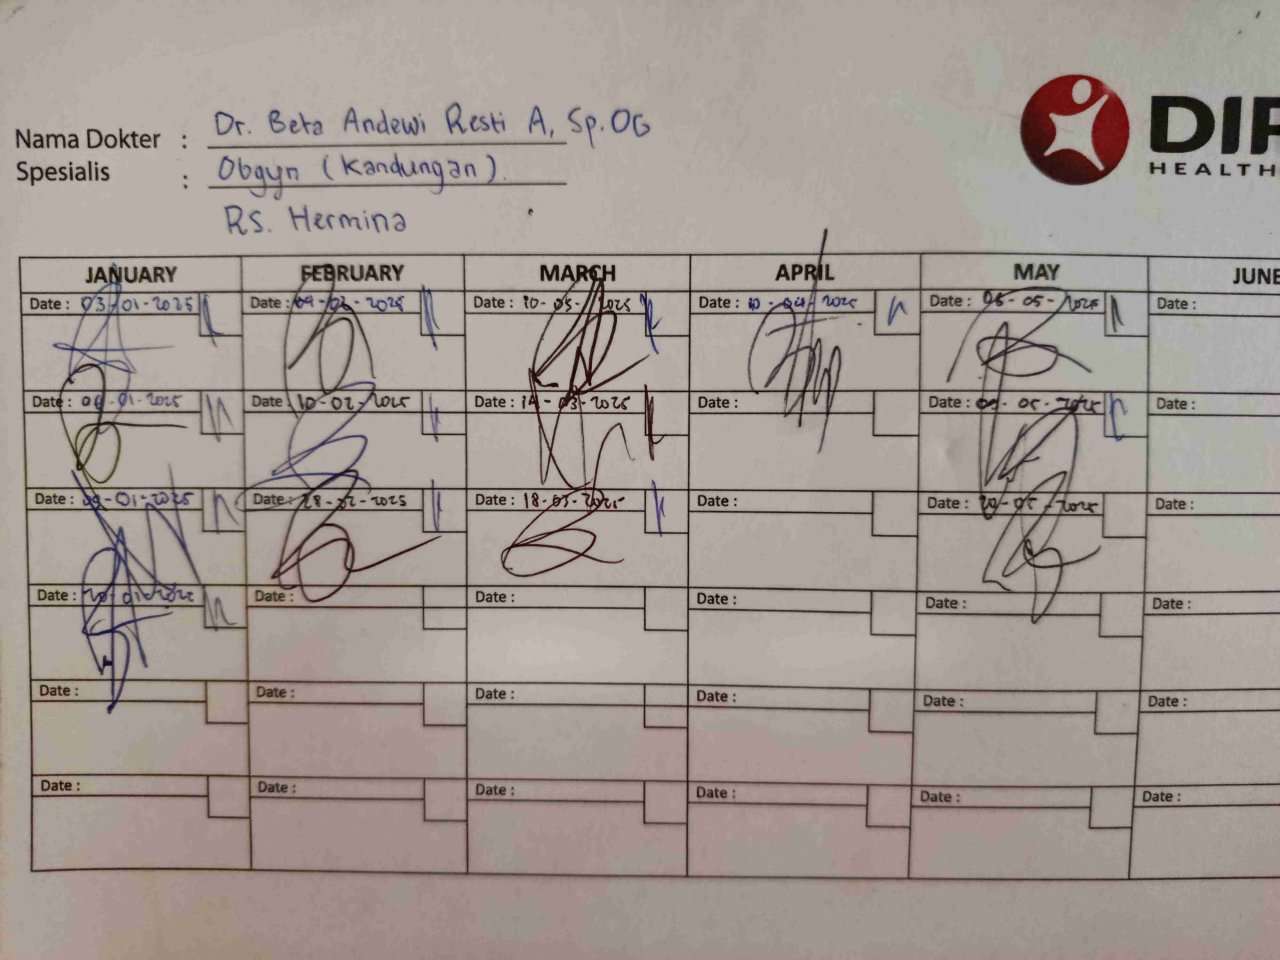 Nama Dokter : Dr. Beta Andewi Resti A, Sp.OG
Spesialis : Obgyn (Kandungan).
RS. Hermina
DIP
HEALTH
JANUARY FEBRUARY MARCH APRIL MAY JUNE
Date : 03-01-2025 Date : 09-02-2025 Date : 10-03-2025 Date : 10-04-2025 Date : 06-05-2025 Date :
Date : 06-01-2025 Date : 10-02-2025 Date : 14-03-2025 Date : Date : 09-05-2025 Date :
Date : 09-01-2025 Date : 28-02-2025 Date : 18-03-2025 Date : Date : 20-05-2025 Date :
Date : 20-01-2025 Date : Date : Date : Date : Date :
Date : Date : Date : Date : Date : Date :
Date : Date : Date : Date : Date : Date :